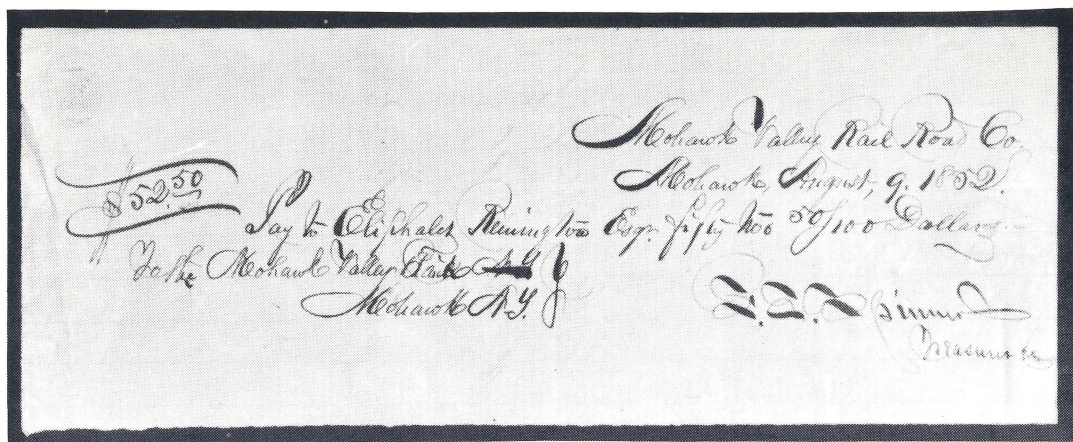 Mohawk Valley Rail Road Co.
Mohawk, August, 9. 1852.
$52.50
Pay to Eliphalet Remington Esqr. fifty two 50/100 Dollars.
To the Mohawk Valley Bank N.Y.
Mohawk N.Y.
Treasurer